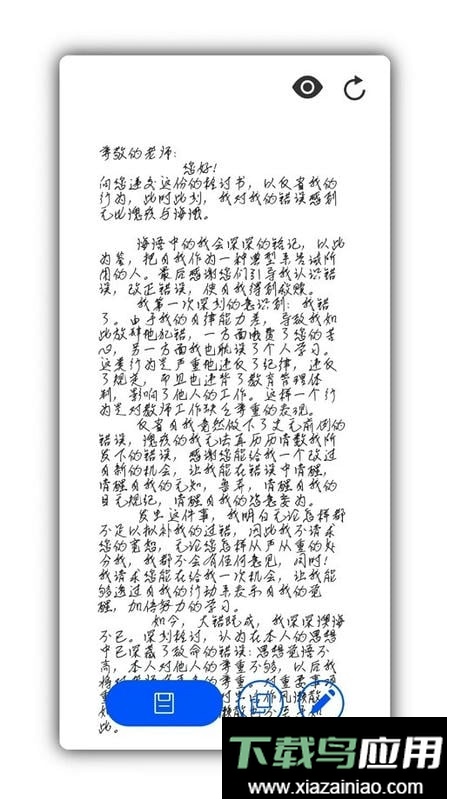 尊敬的老师:
您好!
向您递交这份的检讨书,以反省我的
行为,此时此刻,我对我的错误感到
无比愧疚与悔恨。
悔悟中的我会深深的铭记,以此
为答,把自我作为一种典型来告诫所
困的人。最后感谢您们引导我认识错
误,改正错误,使自我得到救赎。
我第一次深刻的意识到:我错
了。由于我的自律能力差,导致我如
此放肆地犯错,一方面愧疚了您的苦
心,另一方面我也耽误了个人学习。
这类行为是严重他违反了纪律,违反
了规定,而且也违背了教育管理体
制,影响了他人的工作。这样一个行
为是对教师工作缺乏尊重的表现。
反省自我竟然做下了史无前例的
错误,愧疚的我无法真历历清数我所
发下的错误,感谢您能给我一个改过
自新的机会,让我能在错误中清醒,
清醒自我的无知,鲁莽,清醒自我的
目无规纪,清醒自我的恣意妄为。
发生这件事,我明白无论怎样都
不足以拟补我的过错,因此我不请求
您的宽恕,无论您怎样从严从重的处
分我,我都不会有任何意见,同时!
我请求您能在给我一次机会,让我能
够透过自我的行动来表示自我的觉
醒,加倍努力的学习。
如今,大错既成,我深深懊悔
不已。深刻检讨,认为在本人的思想
中已深藏了致命的错误:思想觉悟不
高,本人对他人的尊重不够,以后我
重要事项
此。
下载鸟应用
www.xiazainiao.com